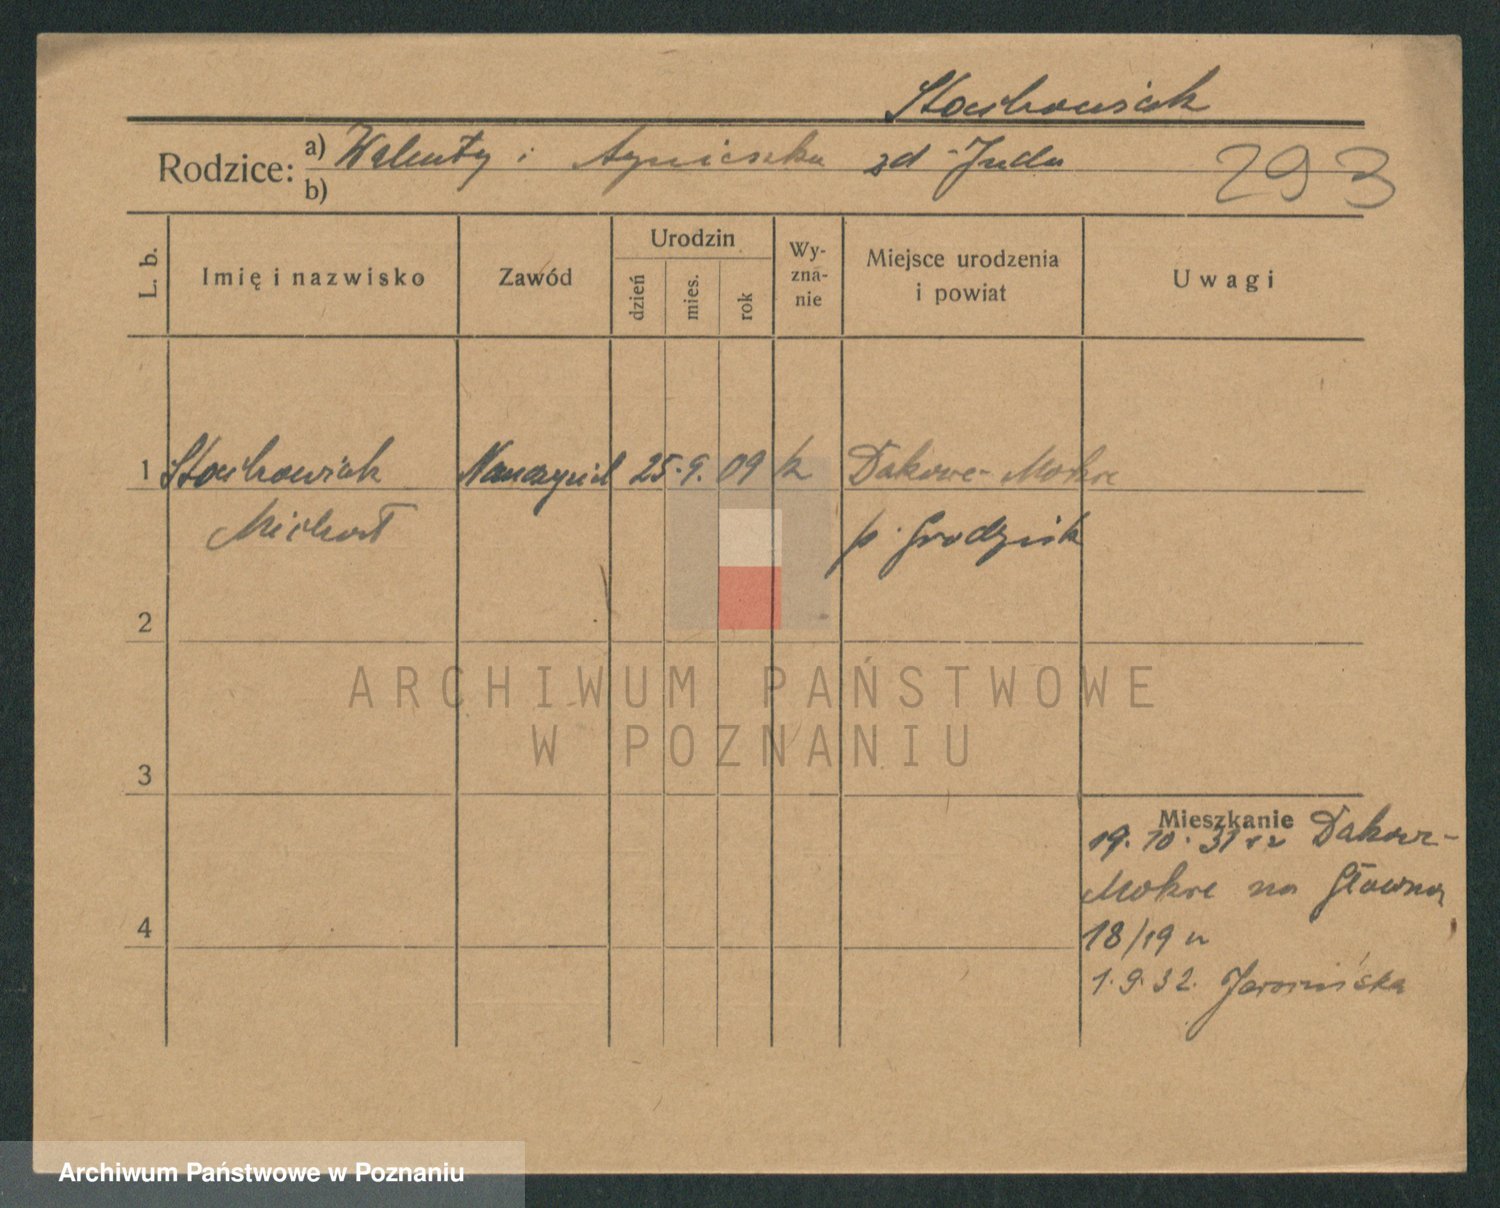 Stachowiak
Rodzice: a) Walenty i Agnieszka zd. Juda
b)
293
L. b.
Imię i nazwisko
Zawód
Urodzin
dzień
mies.
rok
Wy-
zna-
nie
Miejsce urodzenia
i powiat
Uwagi
1 Stachowiak Nauczyciel 25. 9. 09 k Dakowe-Mokre
Michał p. Grodzisk
2
3
4
Mieszkanie
19. 10. 31 z Dakowe-
Mokre na Główna
18/19 u
1. 9. 32.
ARCHIWUM PAŃSTWOWE
W POZNANIU
Archiwum Państwowe w Poznaniu